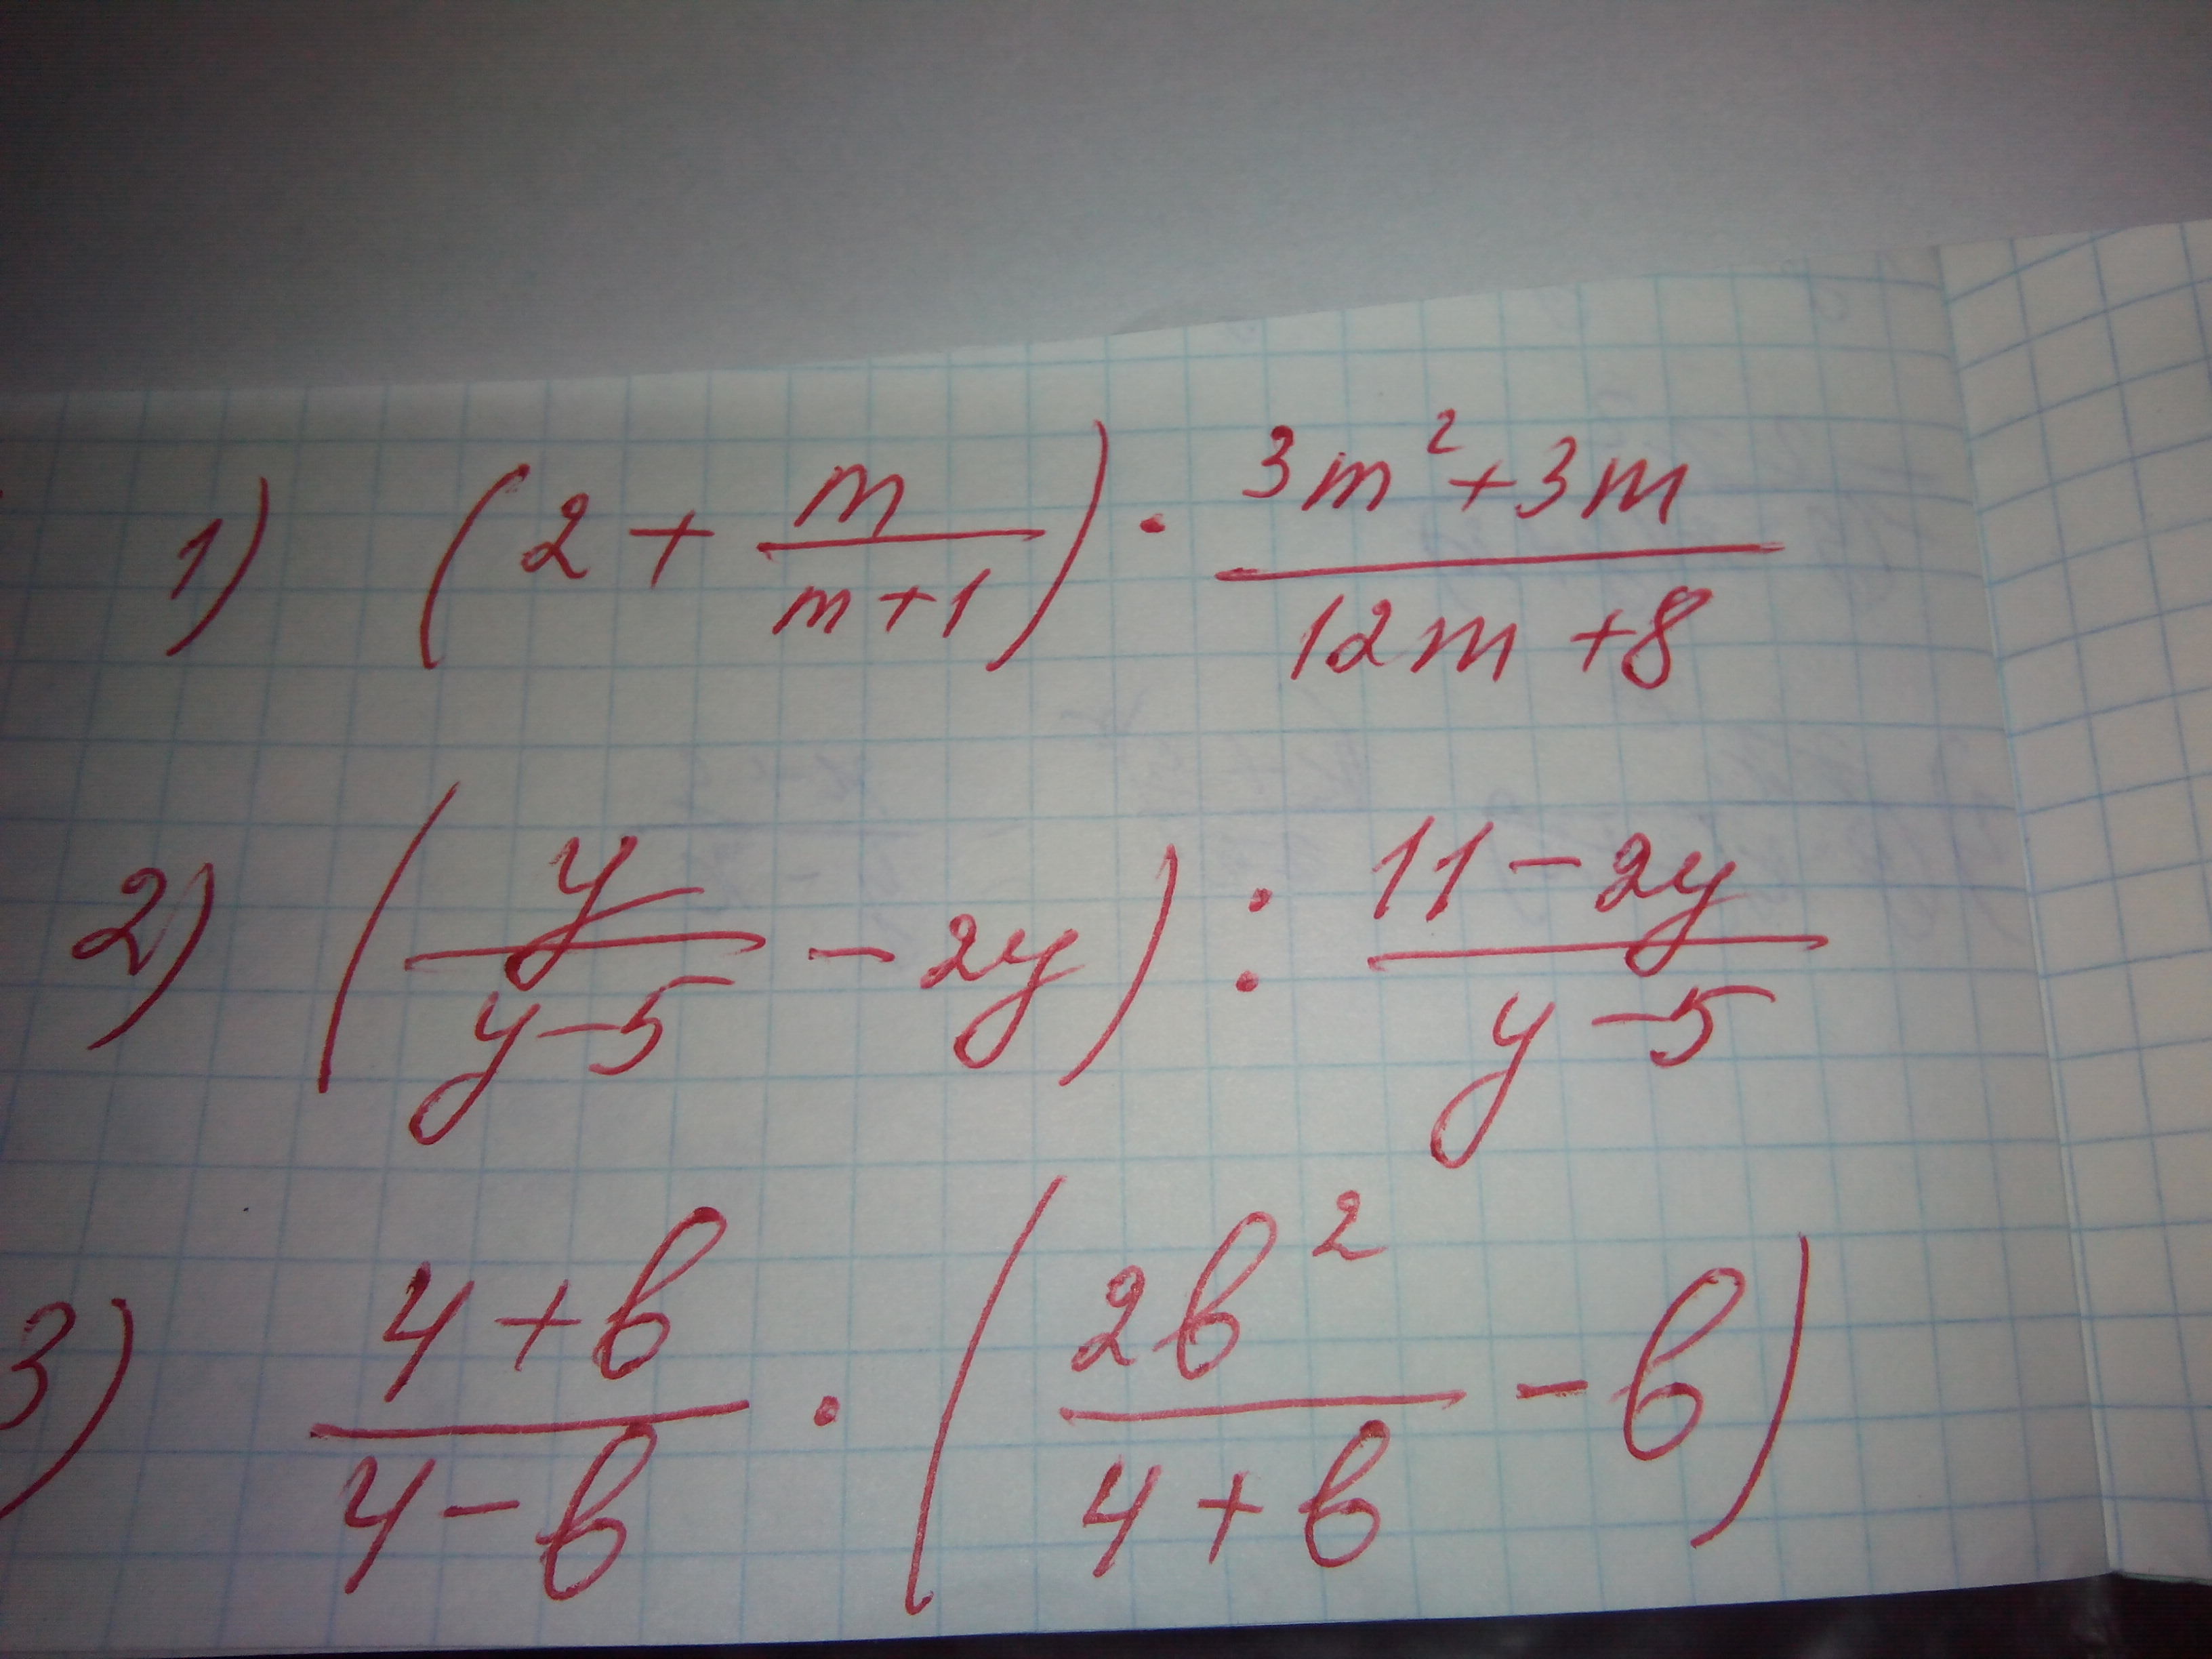 1) (2 + m/(m+1)) · (3m²+3m)/(12m+8)
2) (y/(y-5) - 2y) : (11-2y)/(y-5)
3) (4+b)/(4-b) · (2b²/(4+b) - b)